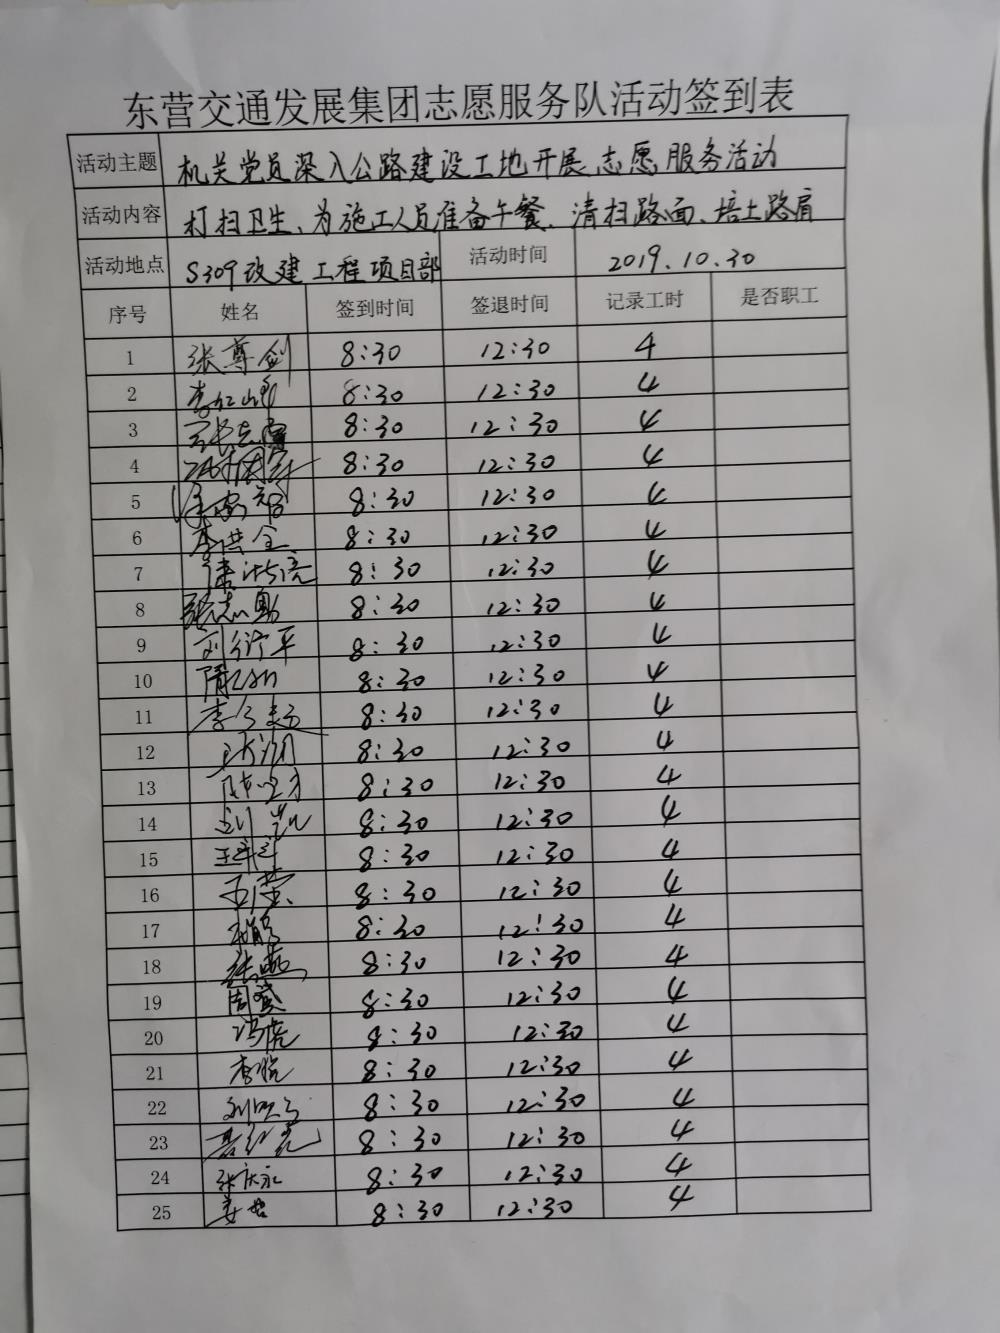 东营交通发展集团志愿服务队活动签到表
活动主题 机关党员深入公路建设工地开展志愿服务活动
活动内容 打扫卫生、为施工人员准备午餐、清扫路面、培土路肩
活动地点 S309改建工程项目部 活动时间 2019.10.30
序号 姓名 签到时间 签退时间 记录工时 是否职工
1 张尊剑 8:30 12:30 4
2 8:30 12:30 4
3 8:30 12:30 4
4 8:30 12:30 4
5 8:30 12:30 4
6 李洪全 8:30 12:30 4
7 8:30 12:30 4
8 张志勇 8:30 12:30 4
9 8:30 12:30 4
10 8:30 12:30 4
11 8:30 12:30 4
12 8:30 12:30 4
13 8:30 12:30 4
14 8:30 12:30 4
15 8:30 12:30 4
16 8:30 12:30 4
17 8:30 12:30 4
18 8:30 12:30 4
19 周盛 8:30 12:30 4
20 冯虎 8:30 12:30 4
21 李悦 8:30 12:30 4
22 8:30 12:30 4
23 8:30 12:30 4
24 张庆永 8:30 12:30 4
25 8:30 12:30 4